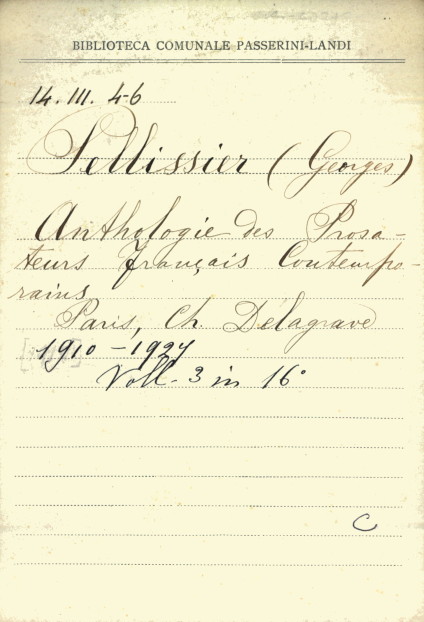 BIBLIOTECA COMUNALE PASSERINI-LANDI
14. III. 4-6
Pellissier (Georges)
Anthologie des Prosa-
teurs français Contempo-
rains
Paris, Ch. Delagrave
1910 - 1927
Voll. 3 in 16°
C